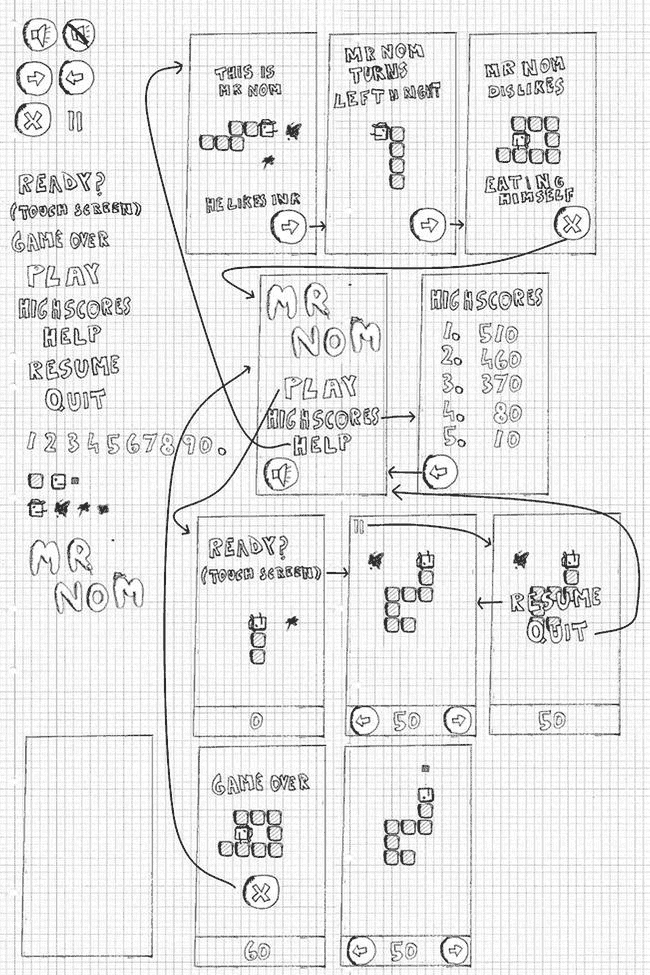 READY?
(TOUCH SCREEN)
GAME OVER
PLAY
HIGHSCORES
HELP
RESUME
QUIT
1234567890.
MR
NOM
THIS IS
MR NOM
HE LIKES INK
MR NOM
TURNS
LEFT N RIGHT
MR NOM
DISLIKES
EATING
HIMSELF
MR
NOM
PLAY
HIGHSCORES
HELP
HIGHSCORES
1. 510
2. 460
3. 370
4. 80
5. 10
READY?
(TOUCH SCREEN)
0
50
RESUME
QUIT
50
GAME OVER
60
50